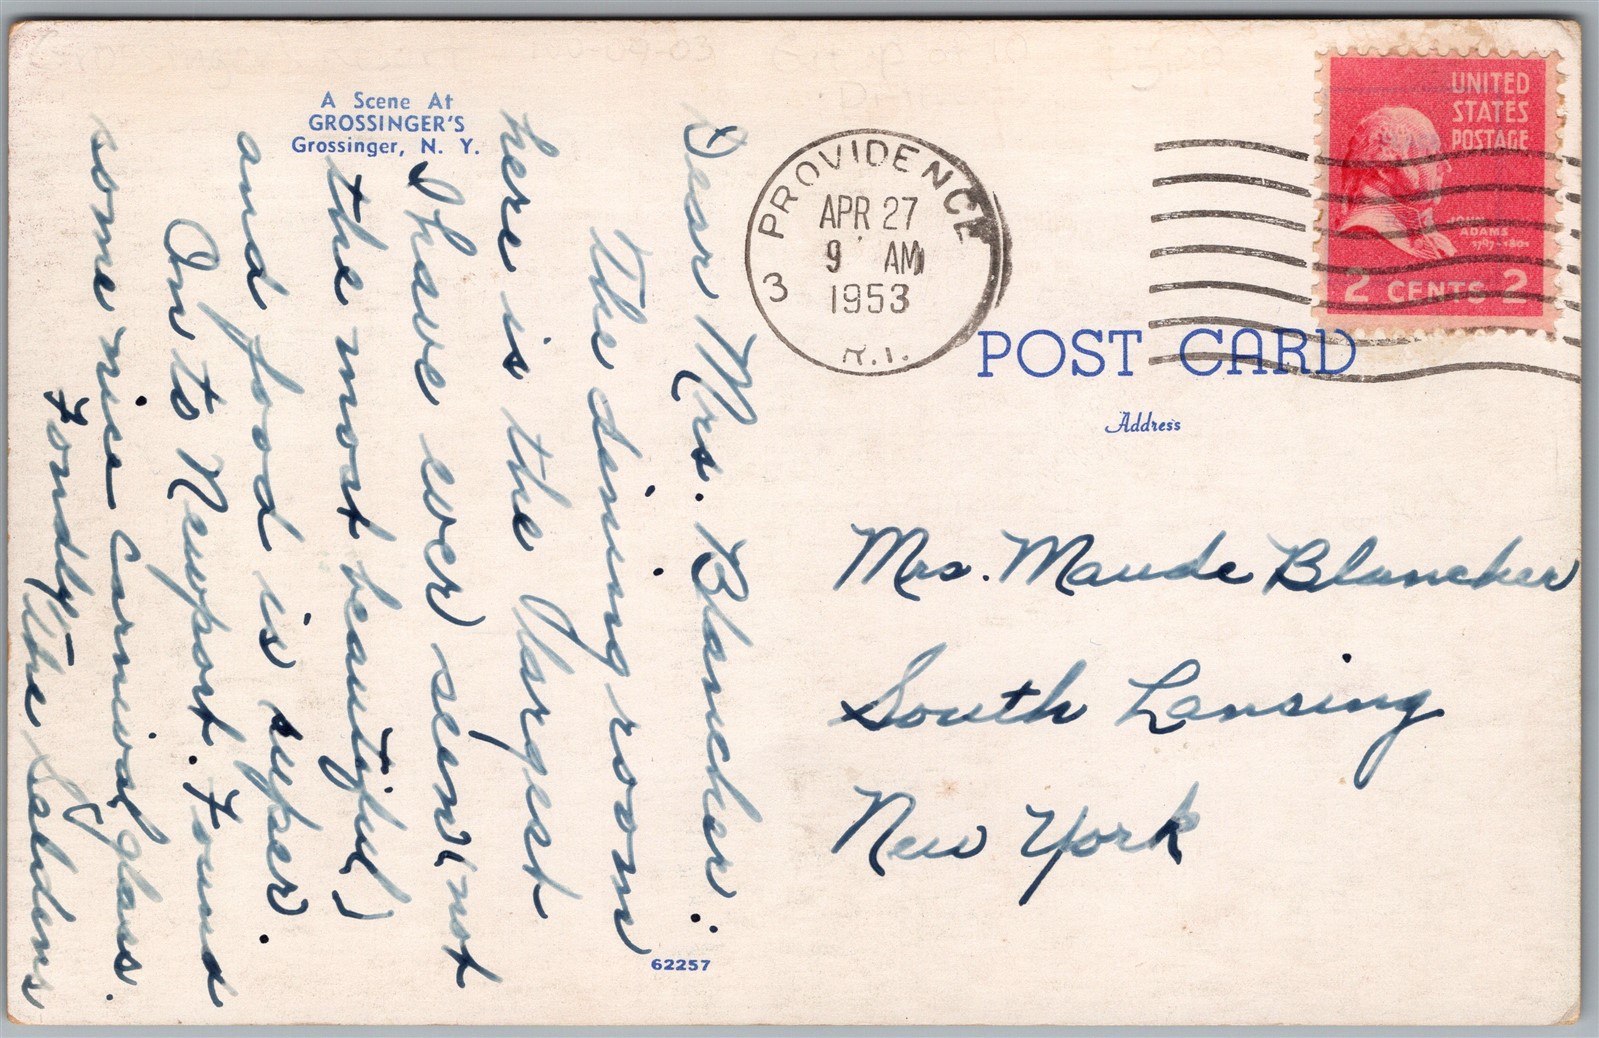 A Scene At
GROSSINGER'S
Grossinger, N. Y.
Dear Mrs. Blancher:
The dining room
here is the largest
I have ever seen (not
the most beautiful)
and food is super.
On to Newport. Found
some nice carnival glass.
Fondly, The Seldens
62257
PROVIDENCE
APR 27
9 AM
1953
3
R.I.
UNITED
STATES
POSTAGE
JOHN
ADAMS
1797-1801
2 CENTS 2
POST CARD
Address
Mrs. Maude Blancher
South Lansing
New York